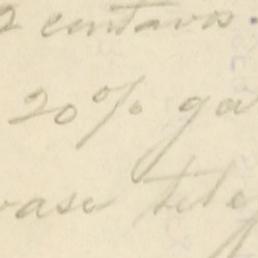 2 centavos.
20% ga
vase tele